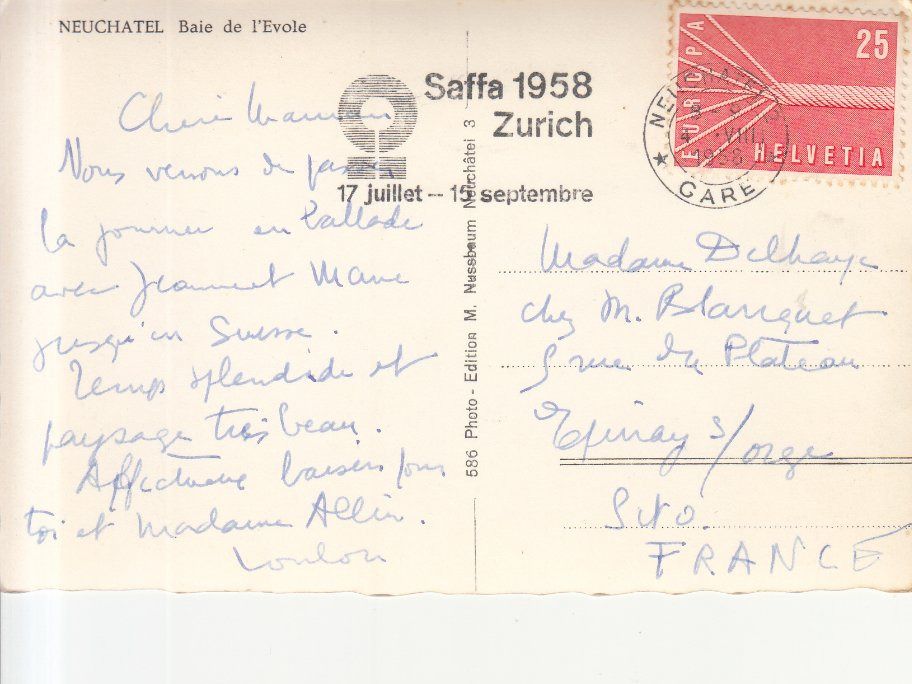 NEUCHATEL Baie de l'Evole
Saffa 1958
Zurich
17 juillet — 15 septembre
EUROPA
25
HELVETIA
NEUCHATEL
VIII
1958
GARE
586 Photo - Edition M. Nussbaum Neuchâtel 3
Chère Maman
Nous venons de passer
la journée en ballade
avec Jeanne et Marie
jusqu'en Suisse.
Temps splendide et
paysage très beau.
Affectueux baisers pour
toi et Madame Allin.
Loulou
Madame Delhaye
chez M. Blanquet
5 rue du Plateau
Epinay s/ orge
S. et O.
FRANCE